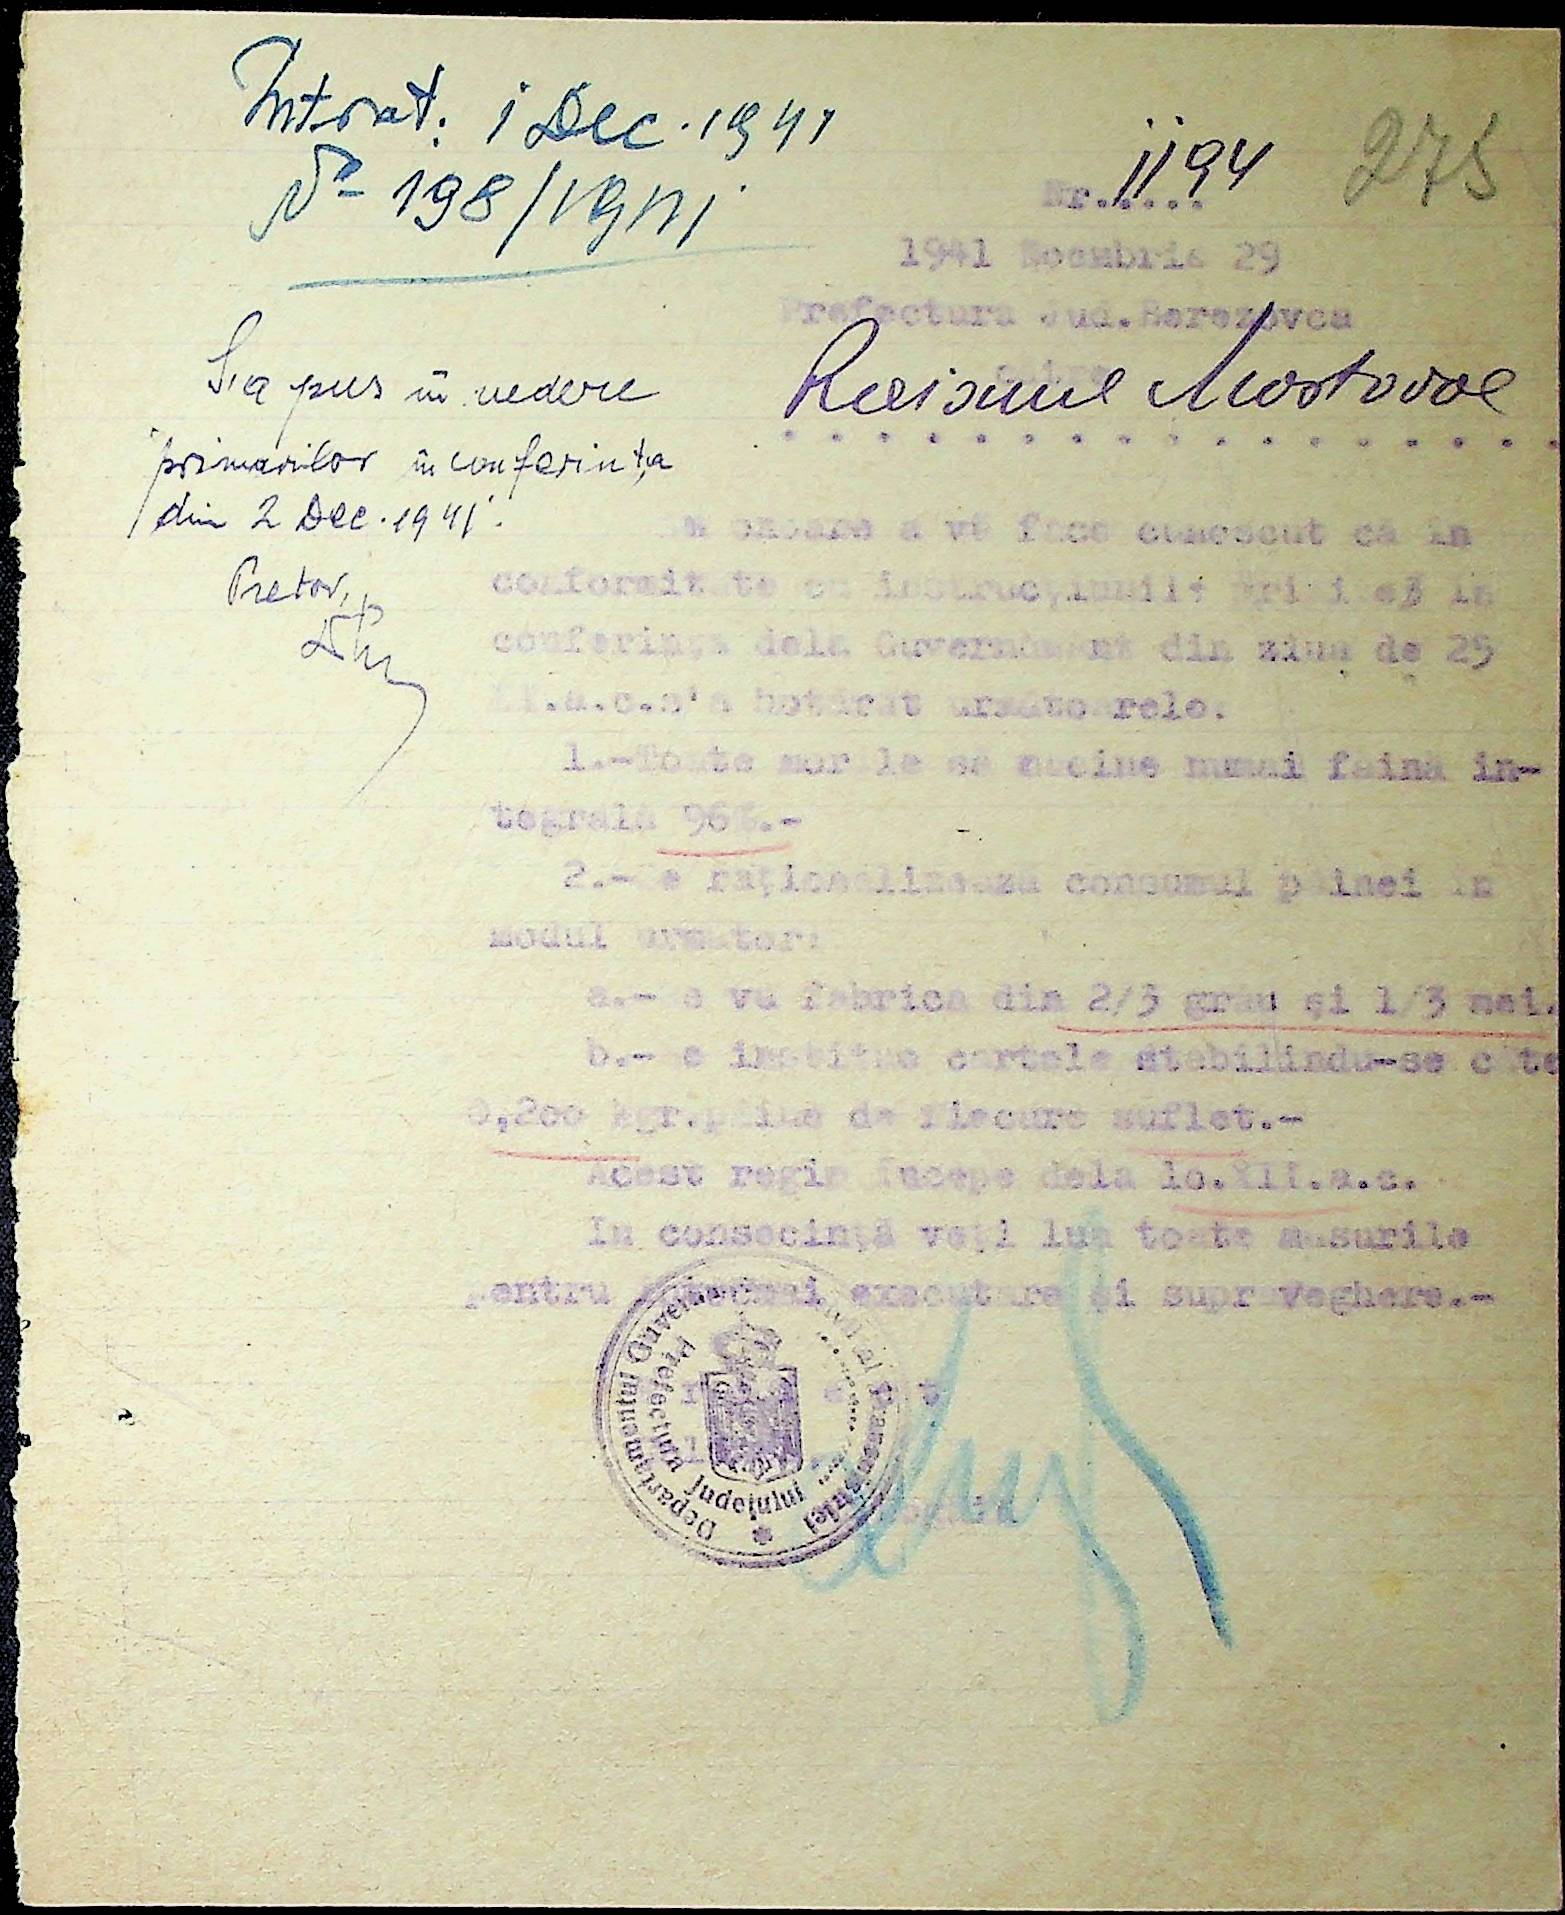 Intrat: 1 Dec. 1941
No 198/1941
Nr..... 1194
275
1941 Noembrie 29
Prefectura Jud. Berezovca
către
Raionul Mostovoe
S'a pus în vedere
primarilor în conferința
din 2 Dec. 1941.
Pretor,
Am onoare a vă face cunoscut ca in
conformitate cu instrucțiunile primite in
conferința dela Guvernământ din ziua de 25
XI.a.c.s'a hotărât următoarele.
1.-Toate morile sa macine numai faină in-
tegrala 96%.-
2.-Se raționalizeaza consumul pâinei in
modul următor:
a.-Se va fabrica din 2/3 grau și 1/3 mei.
b.-Se institue cartele stabilindu-se câte
0,2oo kgr.pâine de fiecare suflet.-
Acest regim începe dela 1o.XII.a.c.
In consecință veți lua toate masurile
pentru executare și supraveghere.-
Departamentul Guvernământul al Transnistriei
Prefectura Județului